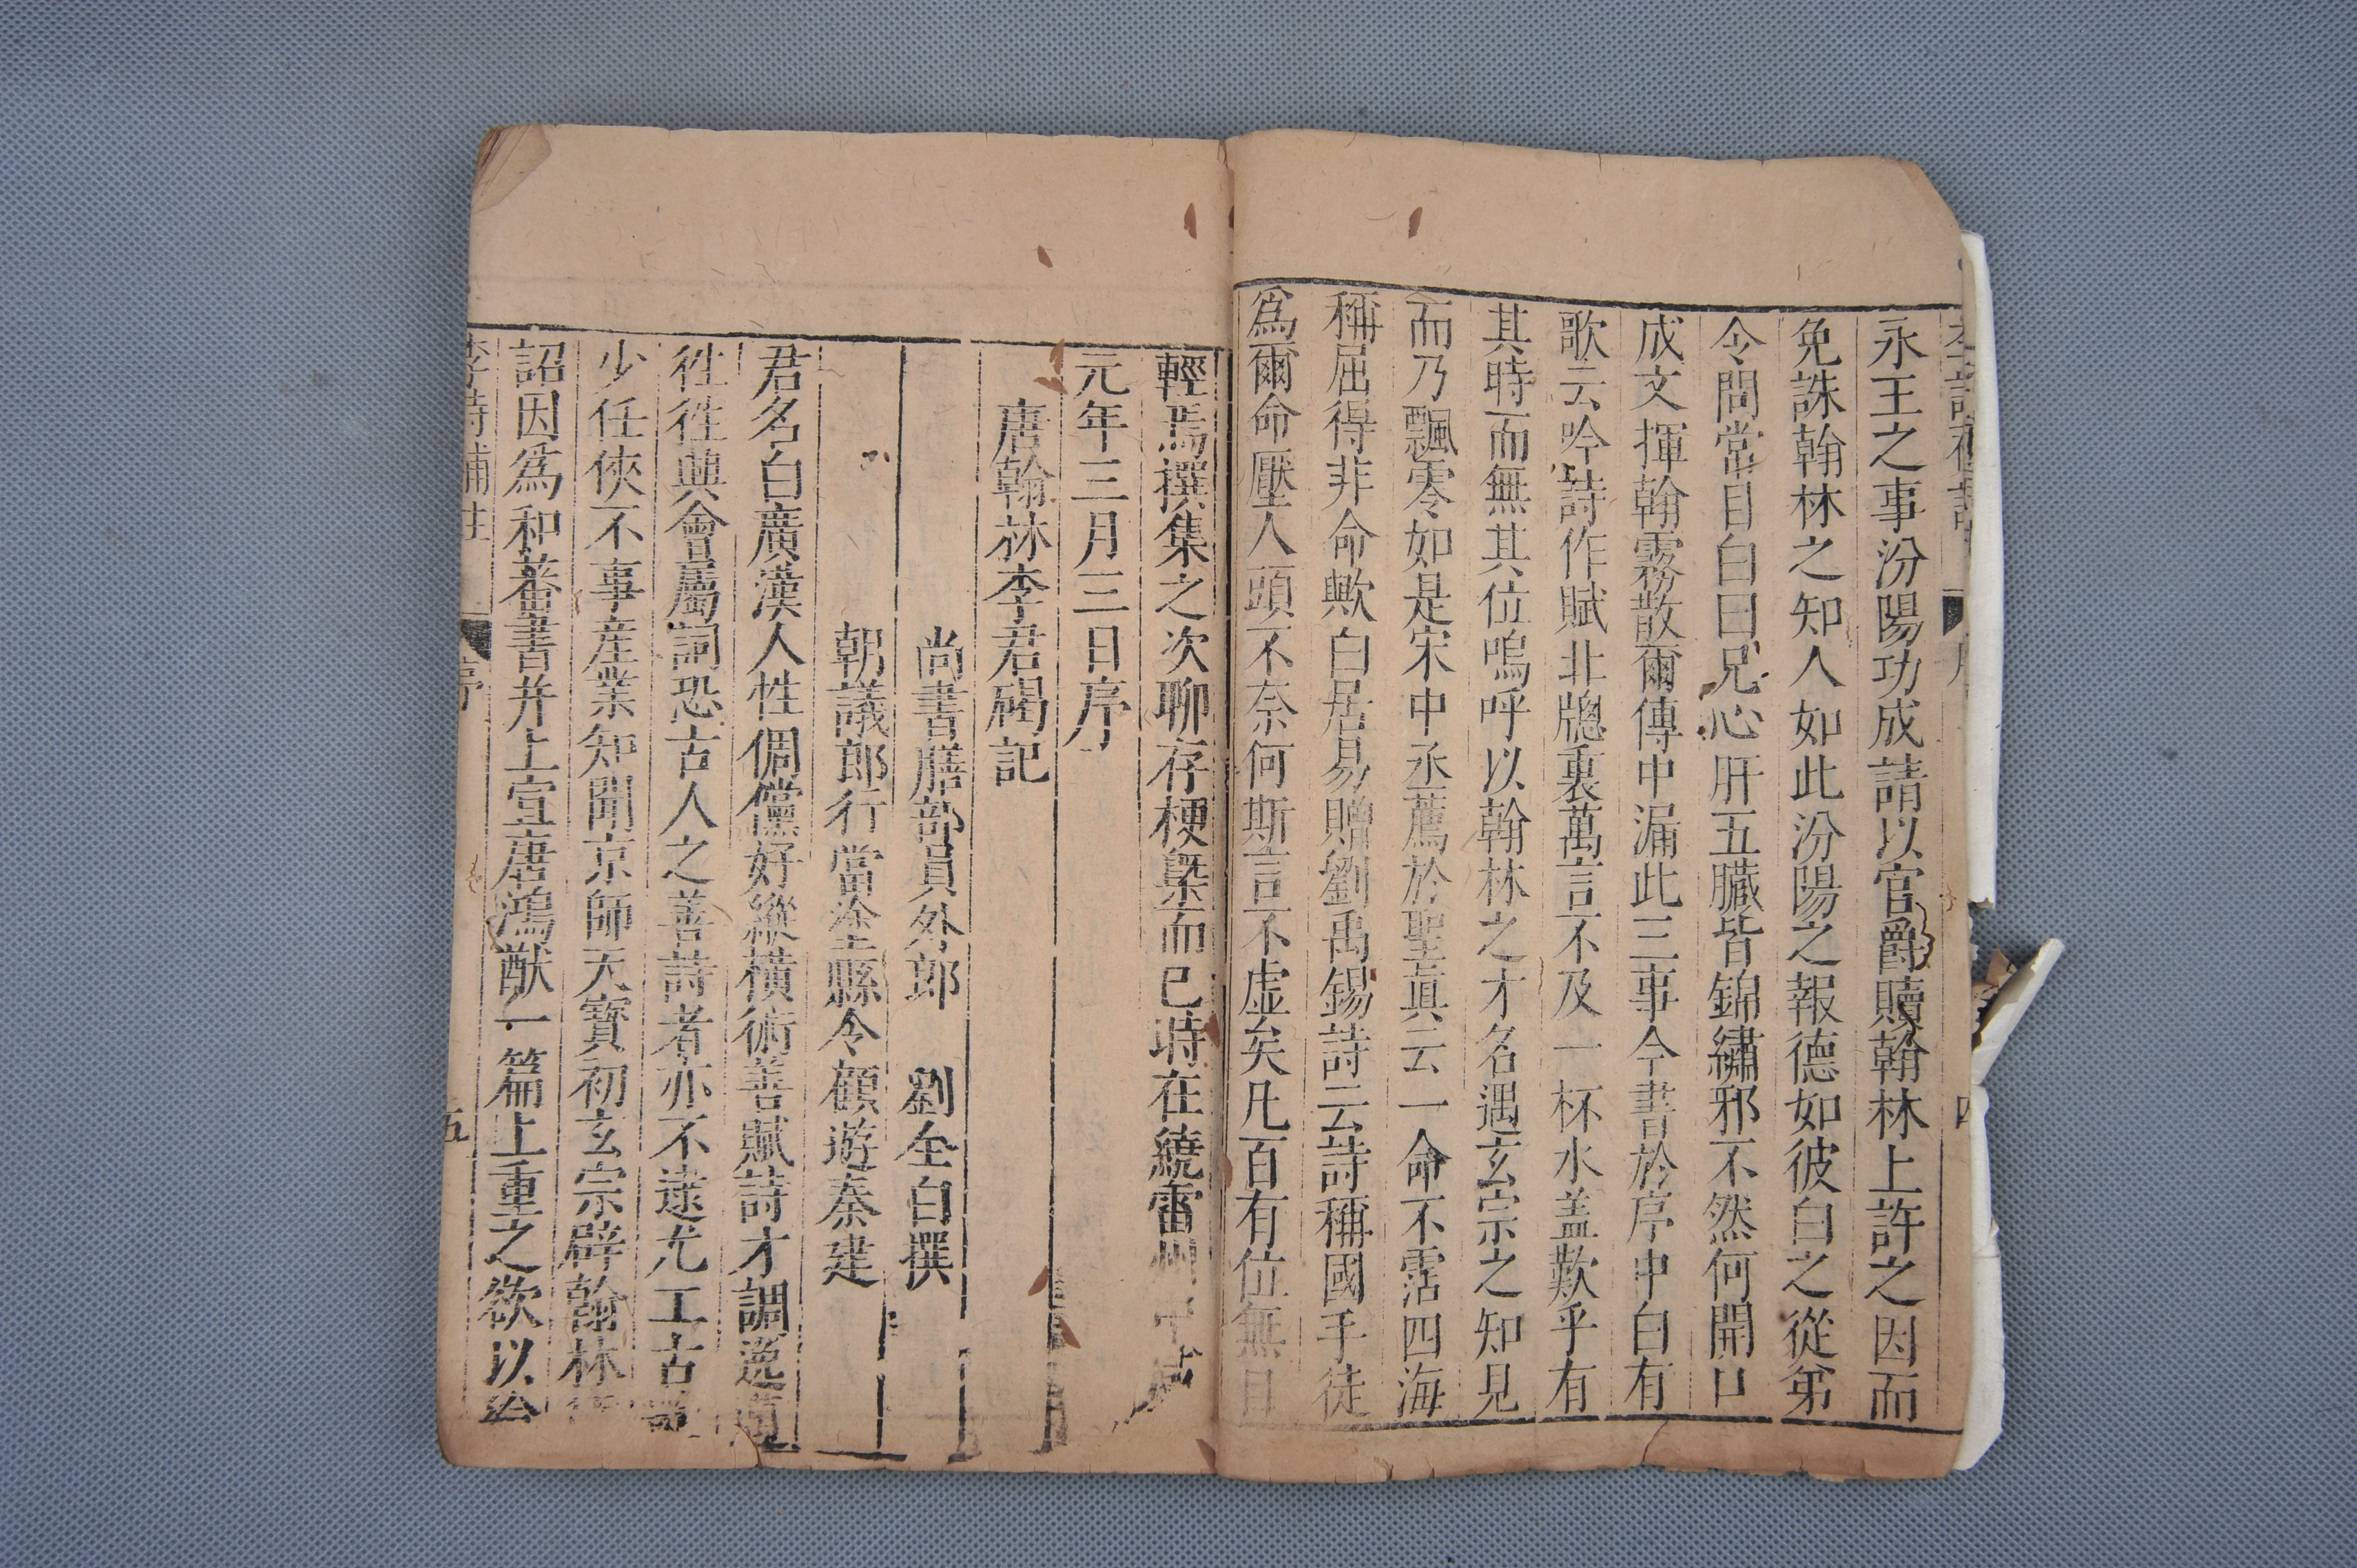 永王之事汾陽功成請以官爵贖翰林上許之因而
免誅翰林之知人如此汾陽之報德如彼白之從弟
令問常目白曰兄心肝五臟皆錦繡邪不然何開口
成文揮翰霧散爾傳中漏此三事今書於序中白有
歌云吟詩作賦北牕裏萬言不及一杯水盖歎乎有
其時而無其位嗚呼以翰林之才名遇玄宗之知見
而乃飄零如是宋中丞薦於聖真云一命不霑四海
稱屈得非命歟白居易贈劉禹錫詩云詩稱國手徒
為爾命壓人頭不奈何斯言不虛矣凡百有位無自
輕焉撰集之次聊存梗槩而已時在繞雷州
元年三月三日序
唐翰林李君碣記
尚書膳部員外郎 劉全白撰
朝議郎行當塗縣令顧遊秦建
君名白廣漢人性倜儻好縱橫術善賦詩才調逸邁
徃徃興會屬詞恐古人之善詩者亦不逮尤工古歌
少任俠不事產業知聞京師天寶初玄宗辟翰林待
詔因為和蕃書并上宣唐鴻猷一篇上重之欲以
李詩補註 序 五